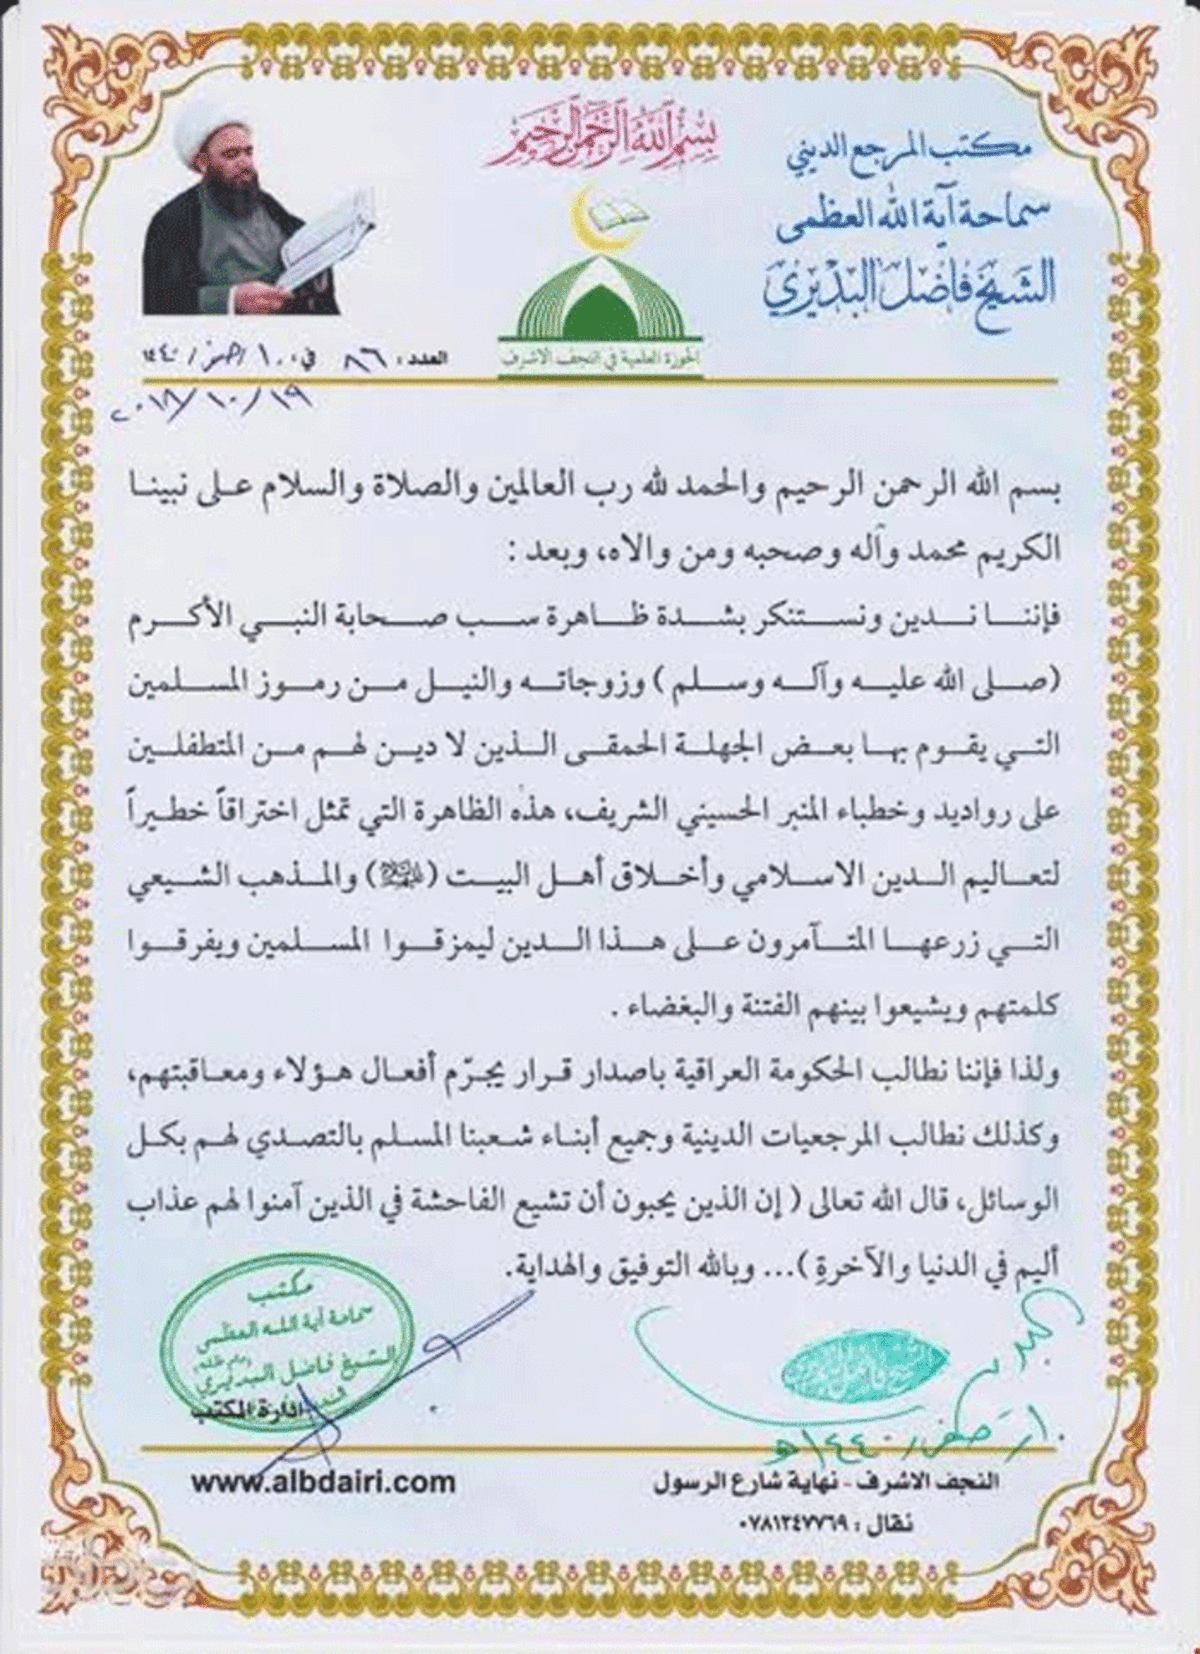 بسم الله الرحمن الرحيم
مكتب المرجع الديني
سماحة آية الله العظمى
الشيخ فاضل البديري
الحوزة العلمية في النجف الاشرف
العدد : ٨٦ في : ١٠ / صفر / ١٤٤٠
٢٠١٨/١٠/١٩
بسم الله الرحمن الرحيم والحمد لله رب العالمين والصلاة والسلام على نبينا
الكريم محمد وآله وصحبه ومن والاه، وبعد :
فإننا ندين ونستنكر بشدة ظاهرة سب صحابة النبي الأكرم
(صلى الله عليه وآله وسلم ) وزوجاته والنيل من رموز المسلمين
التي يقوم بها بعض الجهلة الحمقى الذين لا دين لهم من المتطفلين
على رواديد وخطباء المنبر الحسيني الشريف، هذه الظاهرة التي تمثل اختراقاً خطيراً
لتعاليم الدين الاسلامي وأخلاق أهل البيت () والمذهب الشيعي
التي زرعها المتآمرون على هذا الدين ليمزقوا المسلمين ويفرقوا
كلمتهم ويشيعوا بينهم الفتنة والبغضاء .
ولذا فإننا نطالب الحكومة العراقية باصدار قرار يجرّم أفعال هؤلاء ومعاقبتهم،
وكذلك نطالب المرجعيات الدينية وجميع أبناء شعبنا المسلم بالتصدي لهم بكل
الوسائل، قال الله تعالى ( إن الذين يحبون أن تشيع الفاحشة في الذين آمنوا لهم عذاب
أليم في الدنيا والآخرةِ )... وبالله التوفيق والهداية.
البديري
١٠ / صفر / ١٤٤٠هـ
مكتب
سماحة آية الله العظمى
الشيخ فاضل البديري
ادارة المكتب
النجف الاشرف - نهاية شارع الرسول
نقال : ٠٧٨١٢٤٧٧٦٩
www.albdairi.com